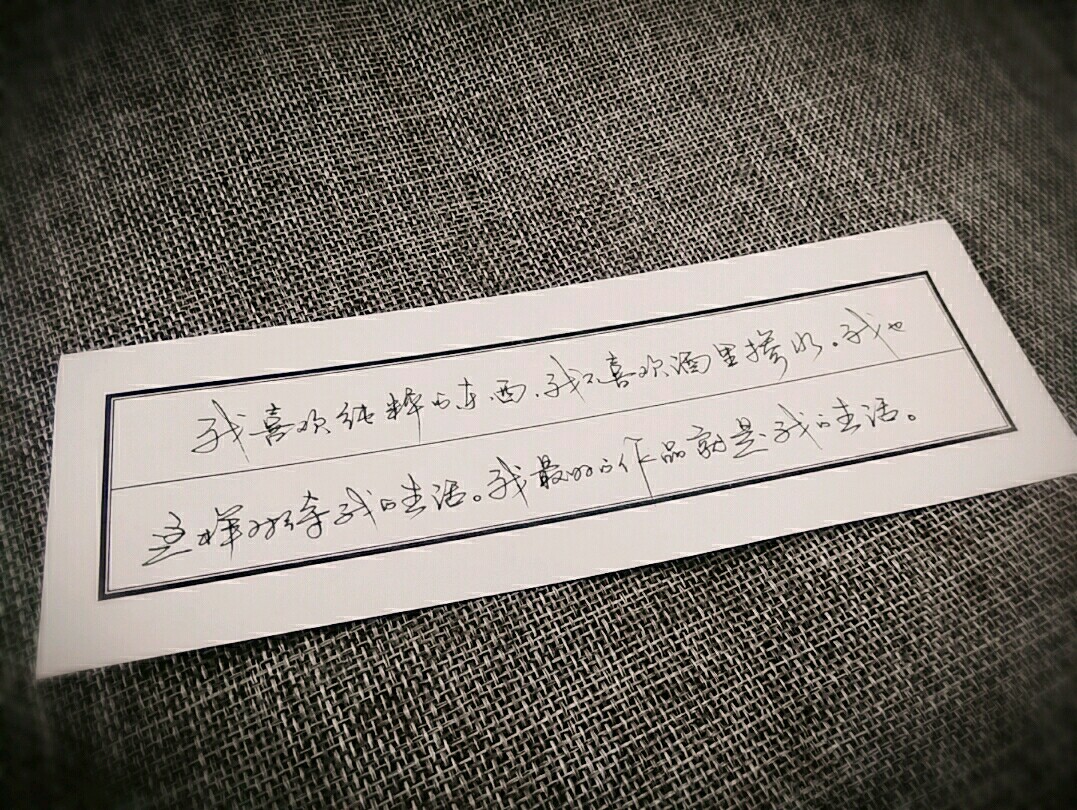 我喜欢纯粹的东西，我不喜欢酒里掺水。我也
这样对待我的生活。我最好的作品就是我的生活。